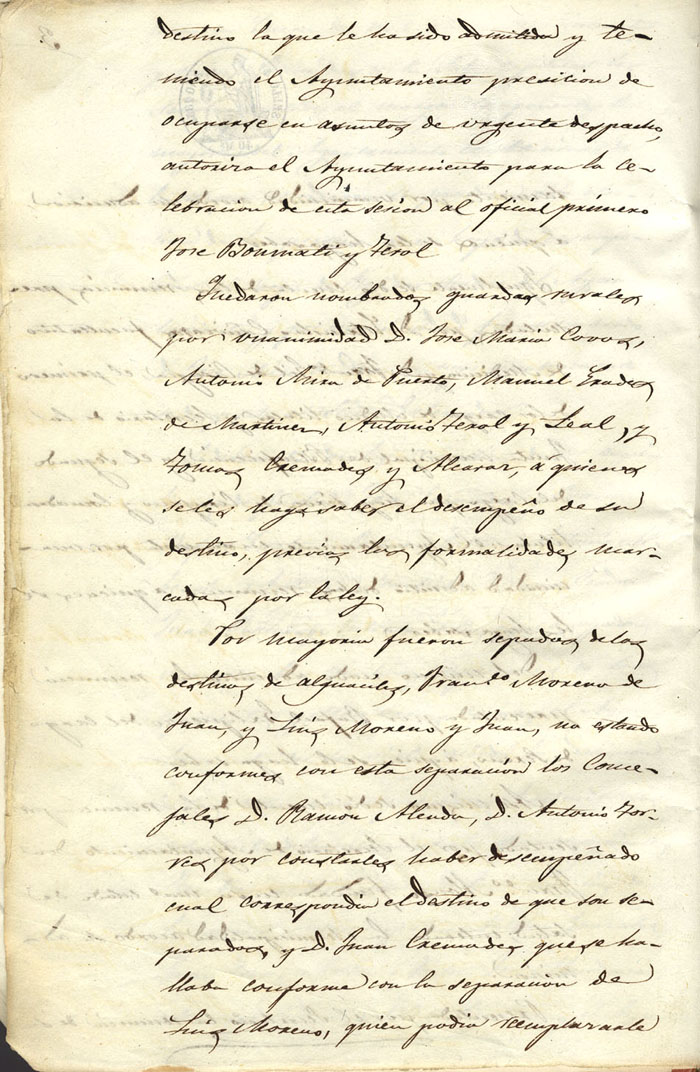 destino la que le ha sido admitida y te-
niendo el Ayuntamiento presition de
ocuparse en asuntos de urgente despacho,
autoriza el Ayuntamiento para la ce-
lebracion de esta sesion al oficial primero
Jose Boumati y Ferol
Quedaron nombrados guardas rurales
por unanimidad D. Jose Maria Covos,
Antonio Mira de Puerto, Manuel Prades
de Martinez, Antonio Ferol y Leal, y
Tomas Cremades y Alcaraz, á quienes
se les haga saber el desempeño de su
destino, previas las formalidades mar-
cadas por la ley.
Por mayoria fueron sepados de los
destinos de alguaciles, Fran.do Moreno de
Juan, y Luis Moreno y Juan, no estando
conformes con esta separación los Conce-
jales D. Ramon Alenda, D. Antonio Tor-
res por constarles haber desempeñado
cual correspondia el destino de que son se-
parados, y D. Juan Cremades que se ha-
llaba conforme con la separacion de
Luis Moreno, quien podia remplazarle